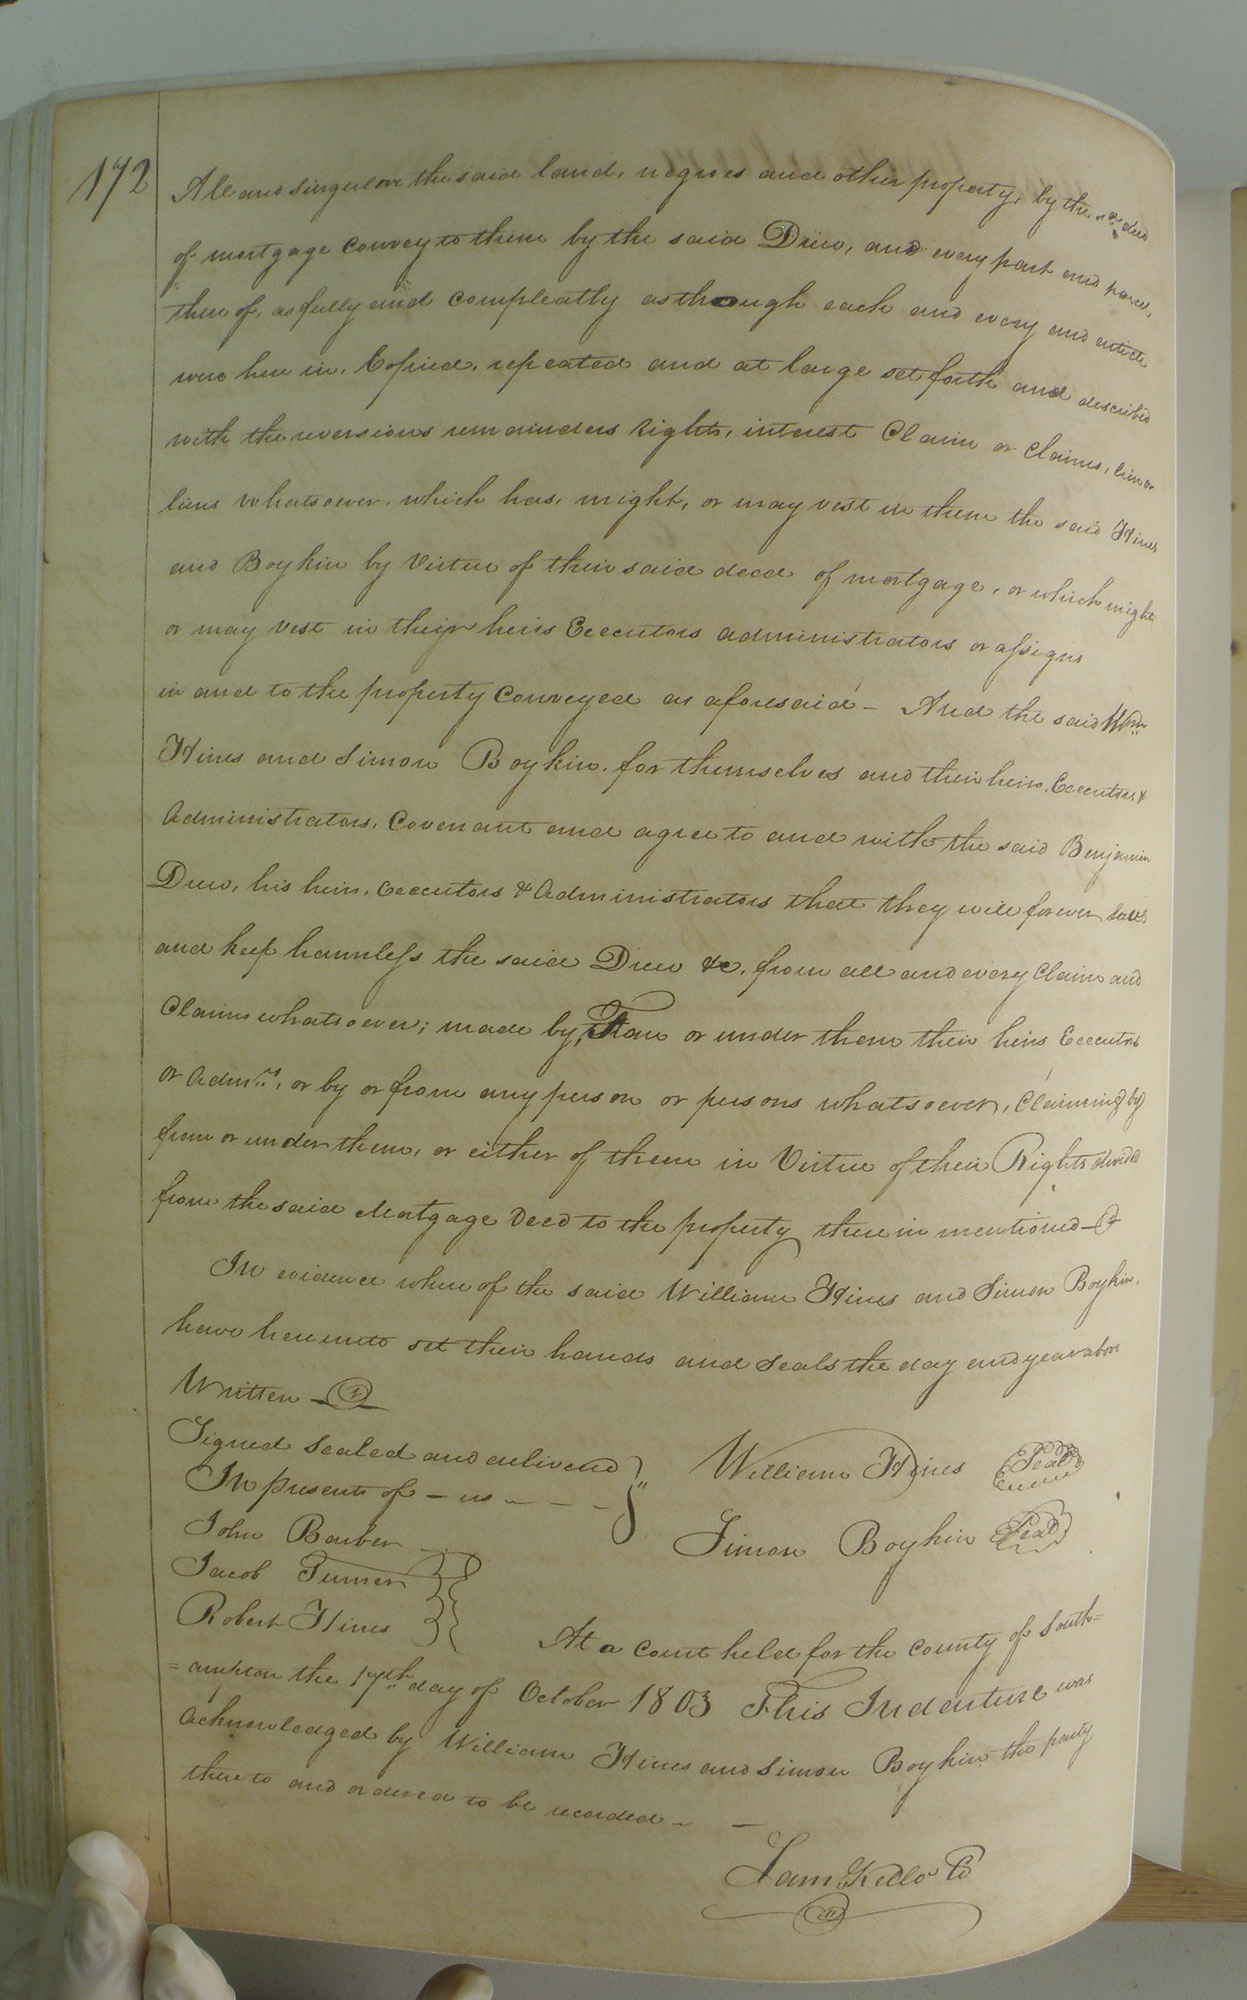 172
All and Singular the said land, negroes and other property, by the sd. deed
of mortgage convey to them by the said Drew, and every part and parcel,
there of, as fully and compleatly as though each and every and article
were here in, Copied, repeated and at large set forth and described
with the reversions remainders Rights, interest Claim or Claims, lien or
liens whatsoever, which has, might, or may vest in them the said Hines
and Boykin by Virtue of their said deed of mortgage, or which might
or may vest in their heirs Executors administrators or assigns
in and to the property Conveyed as aforesaid - And the said Wm.
Hines and Simon Boykin, for themselves and their heirs, Executors &
Administrators, Covenant and agree to and with the said Benjamin
Drew, his heirs, executors & Administrators that they will forever save
and keep harmless the said Drew &c, from all and every Claim and
Claims whatsoever; made by, from or under them their heirs Executors
or Admrs., or by or from any person or persons whatsoever, Claiming by
from or under them, or either of them in Virtue of their Rights derived
from the said Mortgage Deed to the property there in mentioned -
In evidence where of the said William Hines and Simon Boykin,
have hereunto set their hands and seals the day and year above
Written -
Signed Sealed and delivered
In presents of - us - - -
William Hines Seal
John Barber
Simon Boykin Seal
Jacob Turner
Robert Hines
At a Court held for the County of South=
=ampton the 17th. day of October 1803 This Indenture was
Acknowledged by William Hines and Simon Boykin the party
there to and ordered to be recorded - -
Sam. Kello C